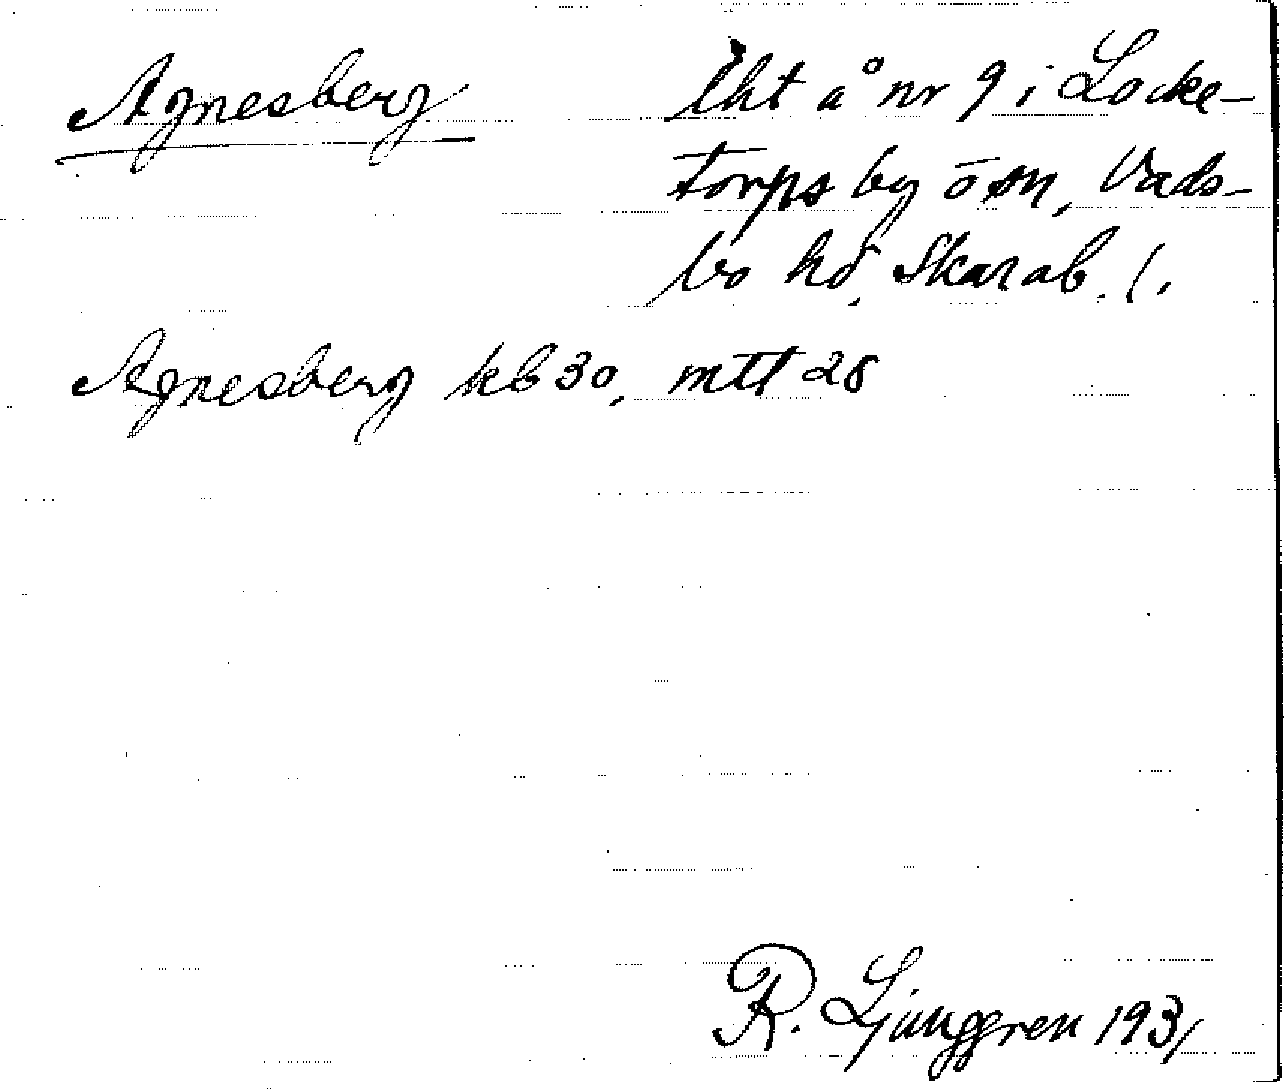 Agnesberg
lht å nr 9 i Locke-
torps by o sn, Vads-
bo hd, Skarab. l.
Agnesberg kb 30, mtl 28
R. Ljunggren 1931